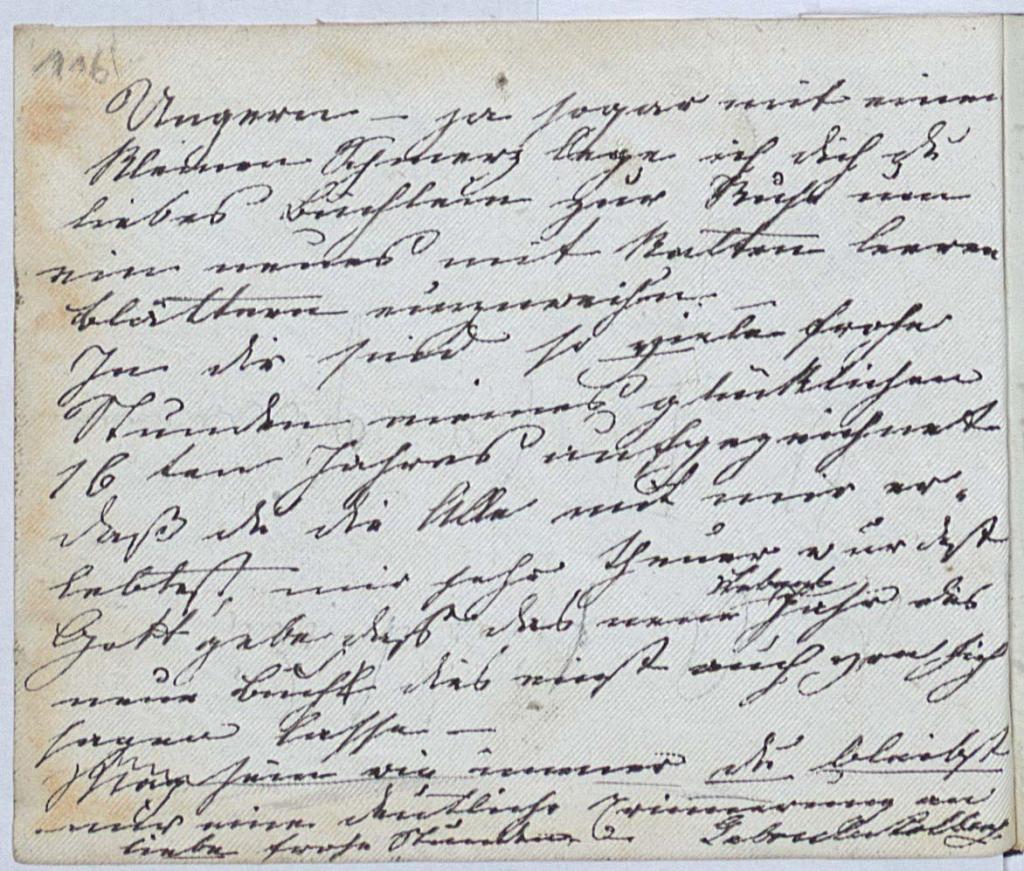 116
Ungern – ja sogar mit einem
kleinen Schmerz lege ich dich du
liebes Büchlein zur Ruhe um
ein neues mit kalten leeren
Blättern einzuweihen.
In dir sind so viele frohe
Stunden meines glücklichen
16 ten Jahres aufgezeichnet
daß du die Alle mit mir er-
lebtest, mir sehr theuer wurdest
Gott gebe daß das neue Lebens Jahr das
neue Buch dies einst auch von sich
sagen lasse –
Mag sein wie immer du bleibst
mir eine deutliche Erinnerung an
liebe frohe Stunden